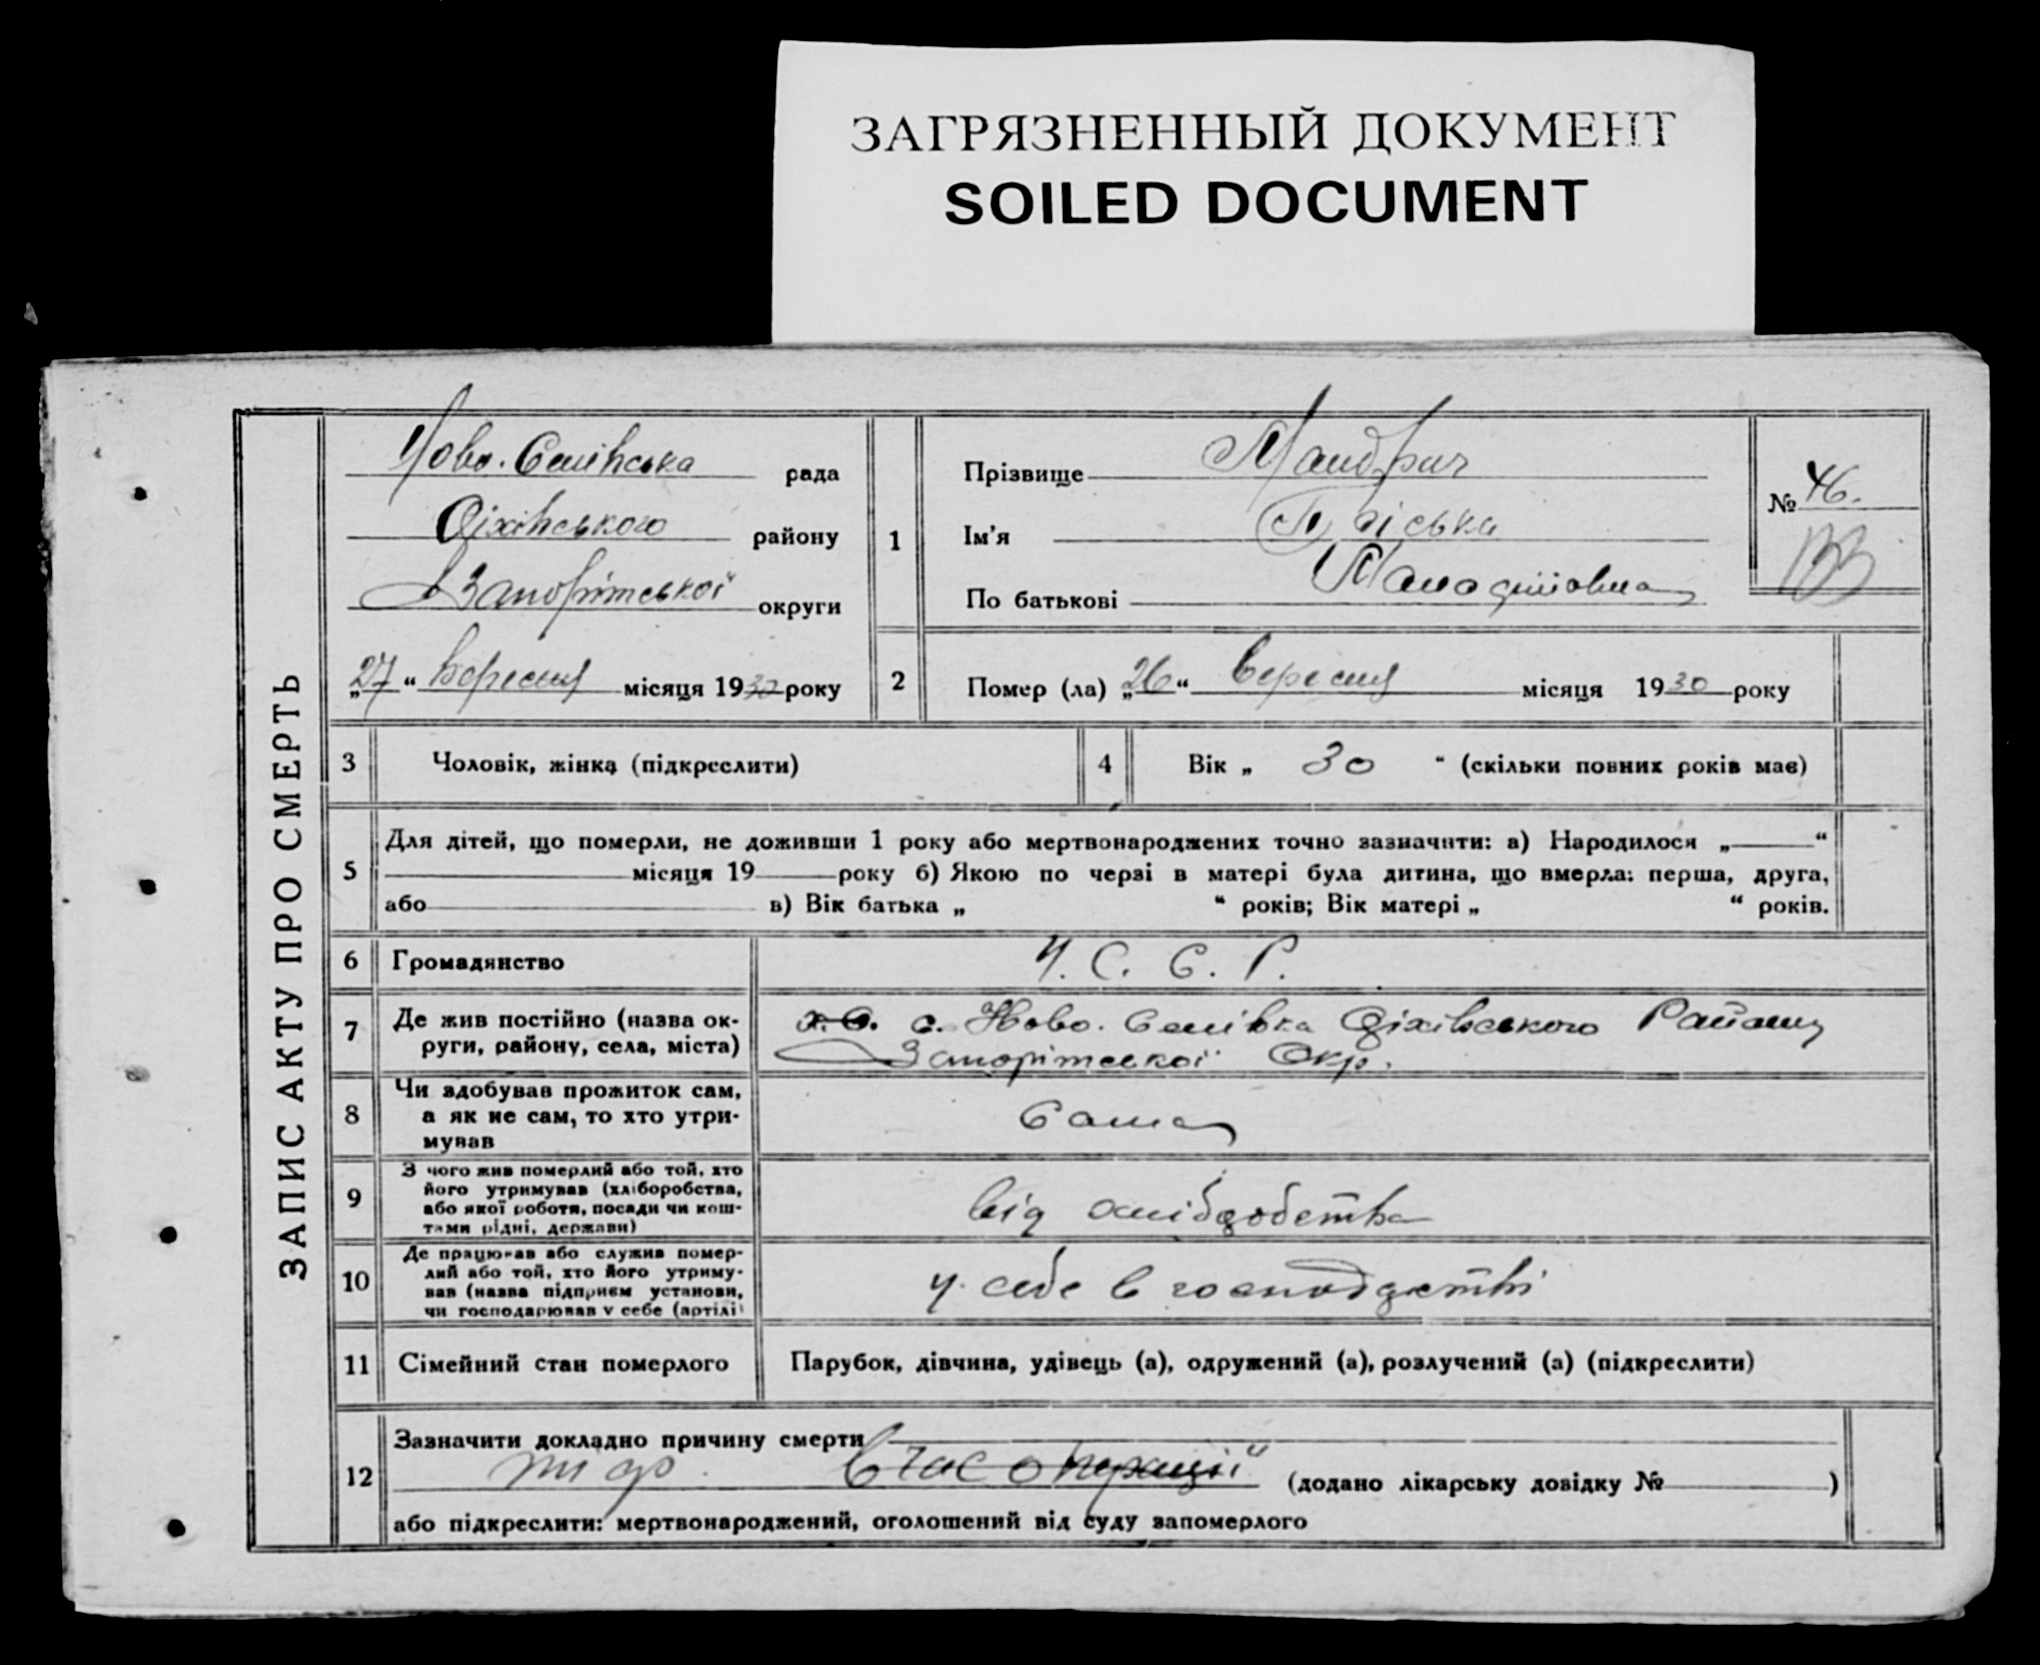 ЗАГРЯЗНЕННЫЙ ДОКУМЕНТ
SOILED DOCUMENT
ЗАПИС АКТУ ПРО СМЕРТЬ
Ново. Семівська рада
Оріхівського району
Запоріжської округи
„27“ Вересня місяця 1930 року
1
Прізвище Мандрич
Ім'я Пріська
По батькові
№ 46.
2
Помер (ла) „26“ Вересня місяця 1930 року
3 Чоловік, жінка (підкреслити)
4 Вік „ 30 “ (скільки повних років має)
5 Для дітей, що померли, не доживши 1 року або мертвонароджених точно зазначити: а) Народилося „ “
місяця 19 року б) Якою по черзі в матері була дитина, що вмерла: перша, друга,
або в) Вік батька „ “ років; Вік матері „ “ років.
6 Громадянство У. С. С. Р.
7 Де жив постійно (назва ок-
руги, району, села, міста)
с. Ново. Семівка Оріхівського Району
Запоріжської Окр.
8 Чи здобував прожиток сам,
а як не сам, то хто утри-
мував
Сама
9 З чого жив померлий або той, хто
його утримував (хліборобства,
або якої роботи, посади чи кош-
тами рідні, держави)
від хліборобства
10 Де працював або служив помер-
лий або той, хто його утриму-
вав (назва підприєм установи,
чи господарював у себе (артілі)
у себе в господарстві
11 Сімейний стан померлого Парубок, дівчина, удівець (а), одружений (а), розлучений (а) (підкреслити)
12 Зазначити докладно причину смерти
тиф. В час операції (додано лікарську довідку № )
або підкреслити: мертвонароджений, оголошений від суду запомерлого